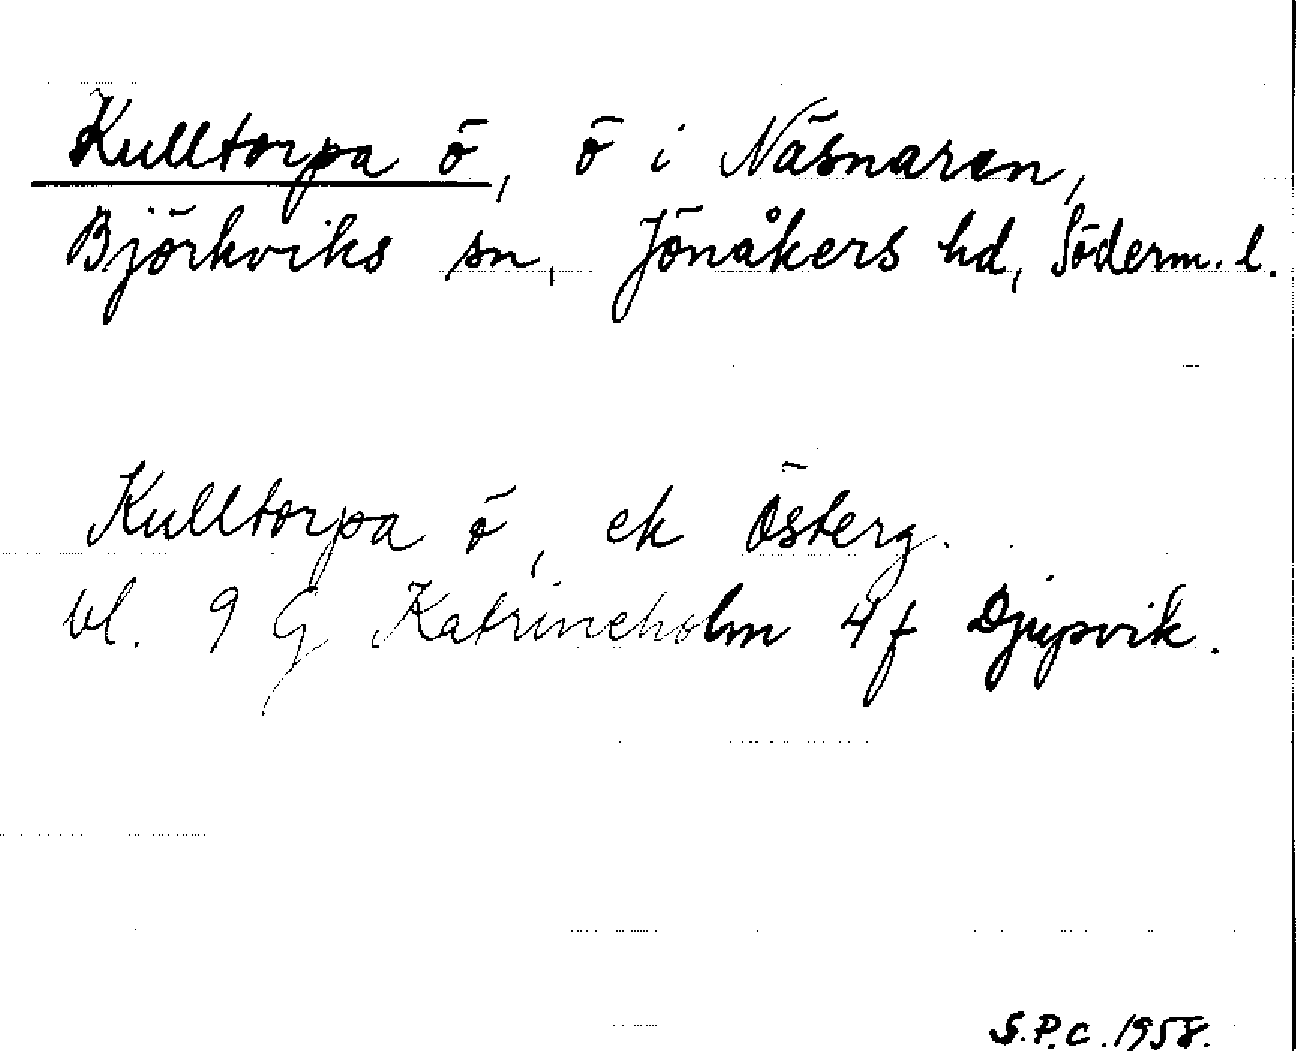 Kulltorpa ö, ö i Näsnaren,
Björkviks sn, Jönåkers hd, Söderm. l.
Kulltorpa ö, ek Österg.
bl. 9 G Katrineholm 4f Djupvik.
S.P.C. 1958.